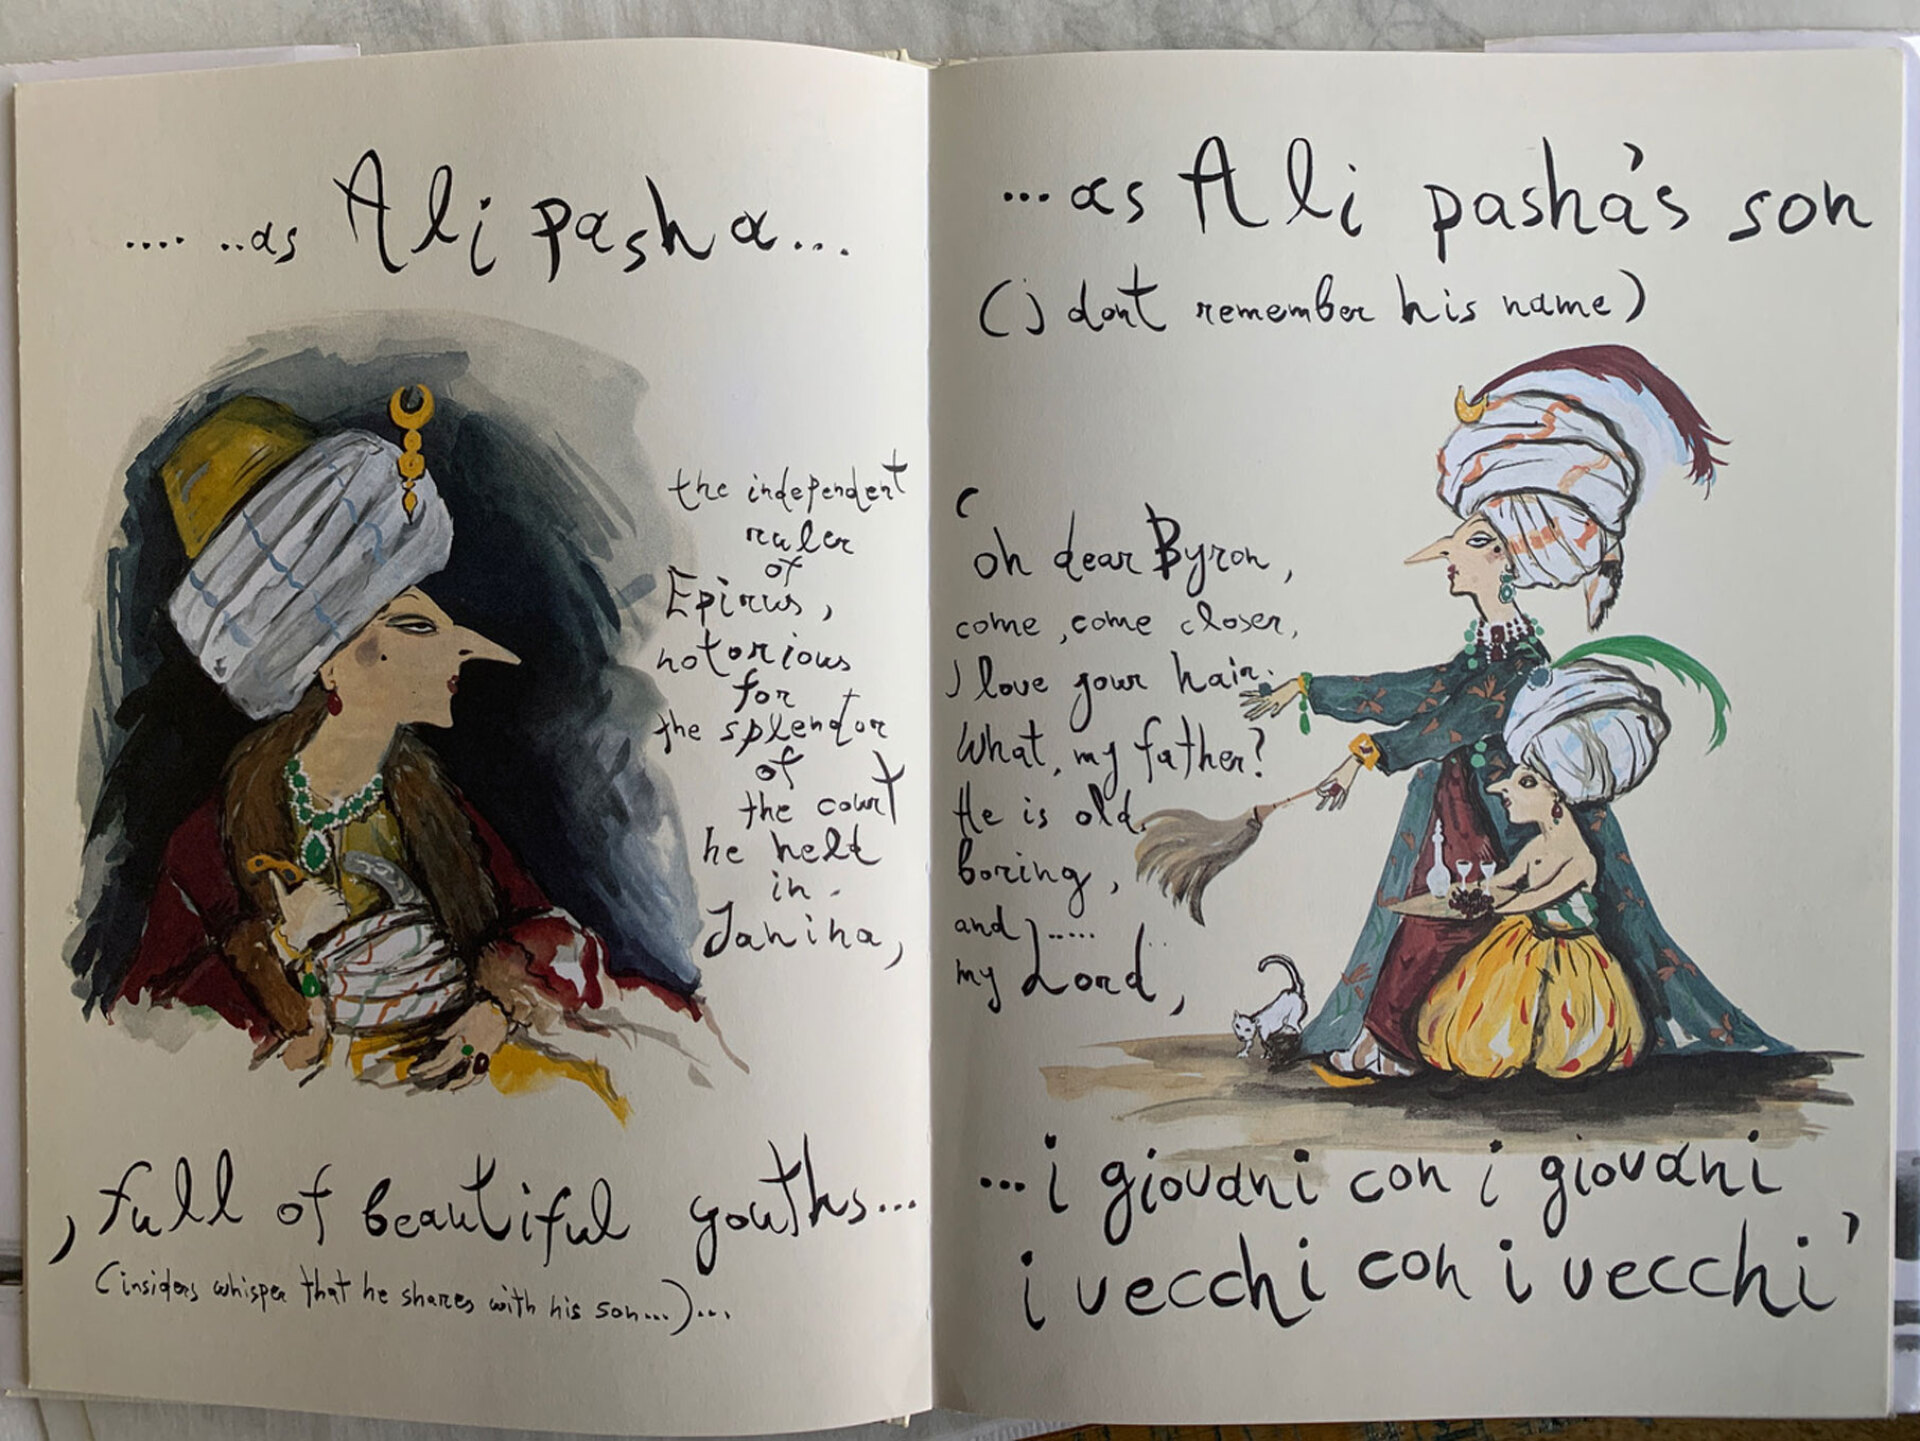 .... ..as Ali pasha...
the independent
ruler
of
Epirus,
notorious
for
the splendor
of
the court
he held
in
Janina,
, full of beautiful youths...
(insiders whisper that he shares with his son...)...
...as Ali pasha's son
(i dont remember his name)
'oh dear Byron,
come, come closer,
I love your hair.
What, my father?
He is old,
boring,
and).....
my Lord,
...i giovani con i giovani
i vecchi con i vecchi'